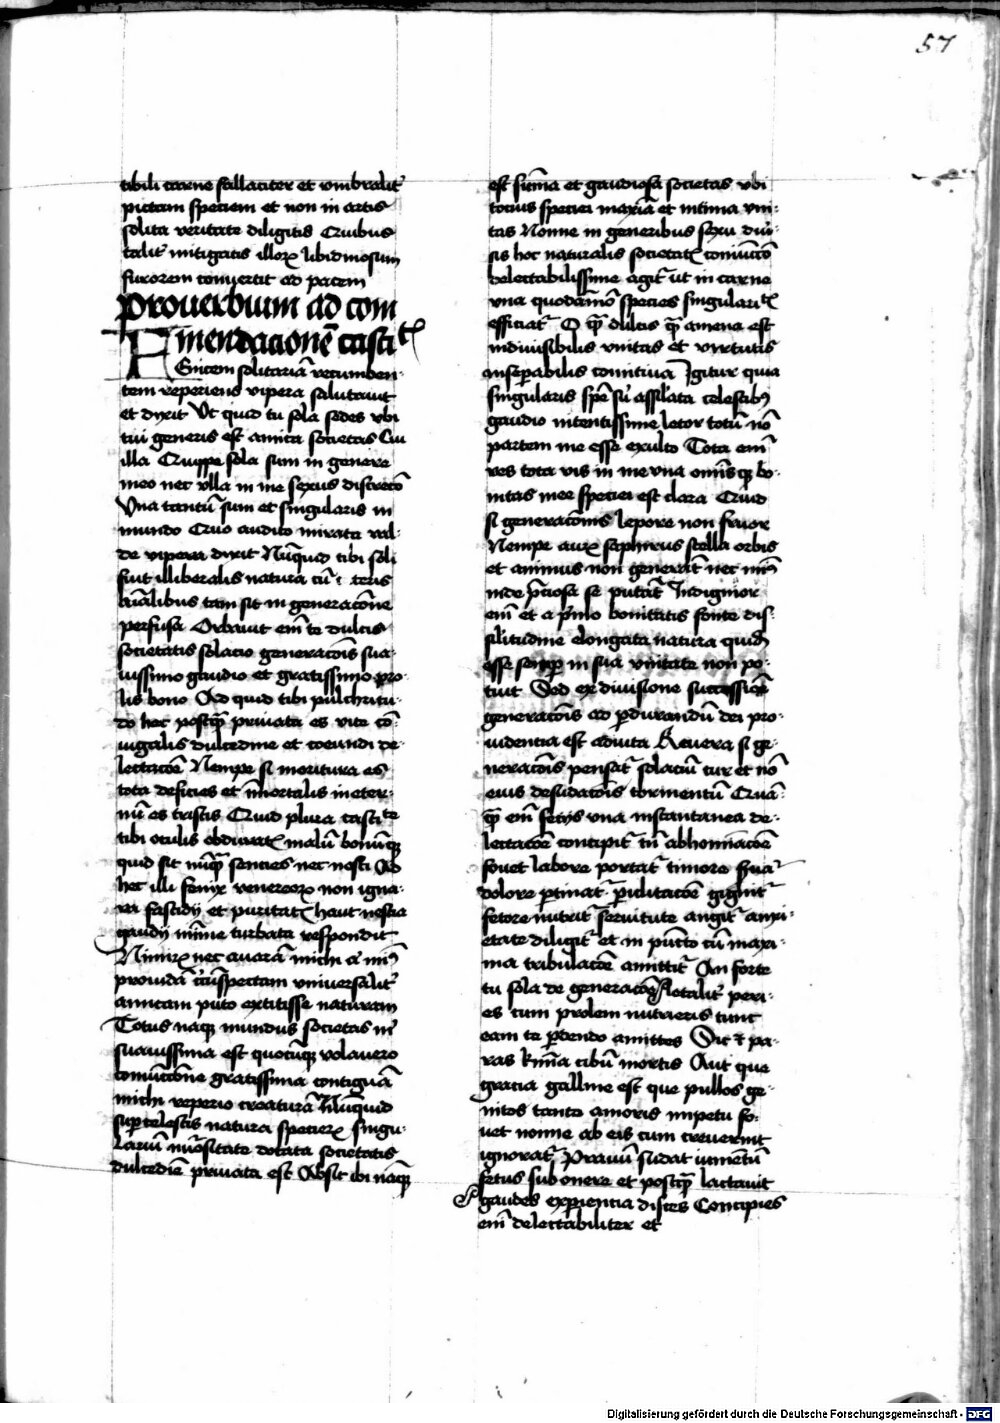 57
tibili carne fallaciter et vmbralit᷑
pictam speciem et non in artis
solita veritate diligitis Quibus
talit᷑ mitigatis illoꝝ libidinosum
furorem conuertit ad pacem
Prouerbium ad com
mendacionē casti
Fenicem solitariā recumben-
tem reperiens vipera salutauit
et dixit Vt quid tu sola sedes vbi
tui generis est amica societas Cui
illa Quippe sola sum in genere
meo nec vlla in me sexus discreco
Vna tantū sum et singularis in
mundo Quo audito mirata val-
de vipera dixit Nūquid tibi soli
fuit illiberalis natura cū ceteris
aīalibus tam sit in generacōne
perfusa Orbauit em̄ te dulcis
societatis solacio generacōis sua-
uissimo gaudio et gratissimo pro-
lis bono Ad quid tibi pulchritu-
do hec postqͣ priuata es vite cō-
iugalis dulcedine et coeundi de-
lectacōe Nempe si moritura es
tota deficies et īmortalis in eter-
nū es tristis Quid plura castitͣte
tibi oculis obduratꝭ malū bonūqꝫ
quid sit nūqͣ senties nec nosti Ad
hec illi fenix venereoꝝ non igna-
ra fastidij et puritatꝭ haut nescia
gaudij mīme turbata respondit
Nimiꝝ nec auarā michi
prouidā circūspectam vniuersalit᷑
amicam puto extitisse naturam
Totus naqꝫ mundus societas m̄
suauissima est quotūqꝫ volauero
coniūctōne gratissima contiguā
michi reperio creaturā Nūquid
supͣcelestis natura specieꝝ singu-
lariū nūositate dotata societatis
dulcedīe priuata est Absit ibi nāqꝫ
est sūma et gaudiosa societas vbi
tocius speciei maxīa et intima vni-
tas Nonne in generibus sexu diui-
sis hoc naturalis societatꝭ coniūctō
delectabilissime agit᷑ ut in carne
vna quodāmō species singularitͣs
efficiat᷑ O qͣ dulcis qͣ amena est
indiuisibilis vnitas et virtutis
inseparabilis Igitur quia
singularis spē su assīlata celestibꝫ
gaudio intentissime letor totū nō
partem me esse exulto Tota em̄
res tota vis in me vna omīsqꝫ bo-
nitas mee speciei est clara Quid
si generacōnis lepore non fruor
Nempe auꝝ saphirus stella orbis
et animus non generāt nec
inde p̄ciosa se putāt Indignior
em̄ et a p̄mo bonitatis fonte dis-
silitudine elongata natura quidē
esse semp in sua vnitate non po-
tuit Sed ex diuisione successiōe
generacōis ad ꝑdurandū dei pro-
uidencia est adiuta Reuera si ge-
neracōis pensat᷑ solaciū cur et nō
eius desudacōis tormentū Quā-
qͣ em̄ fetus vna instantanea de-
lectacōe concipit᷑ tn̄ abhominacōe
fouet labore portat᷑ timore
dolore ꝑtinat᷑ ꝑiclitacōe gignit᷑
fetore nutrit᷑ seruitute angit᷑ anxi-
etate diligit᷑ et in pūcto cū maxi-
ma tribulacōe amittit᷑ An forte
tu sola de generacōe letalit᷑ peri-
es cum prolem nutrieris tunc
eam te ꝑdendo amittes Sic et pa-
ras cibū mortis Aut que
gracia galline est que pullos ge-
nitos tanto amoris impetu fo-
uet nonne ab eis cum creuerint
ignorat᷑ Prauū sudat iumētū
fetus sub onere et postqͣ lactauit
gaudes expiencia disces Concipies
em̄ delectabiliter et
Digitalisierung gefördert durch die Deutsche Forschungsgemeinschaft - DFG